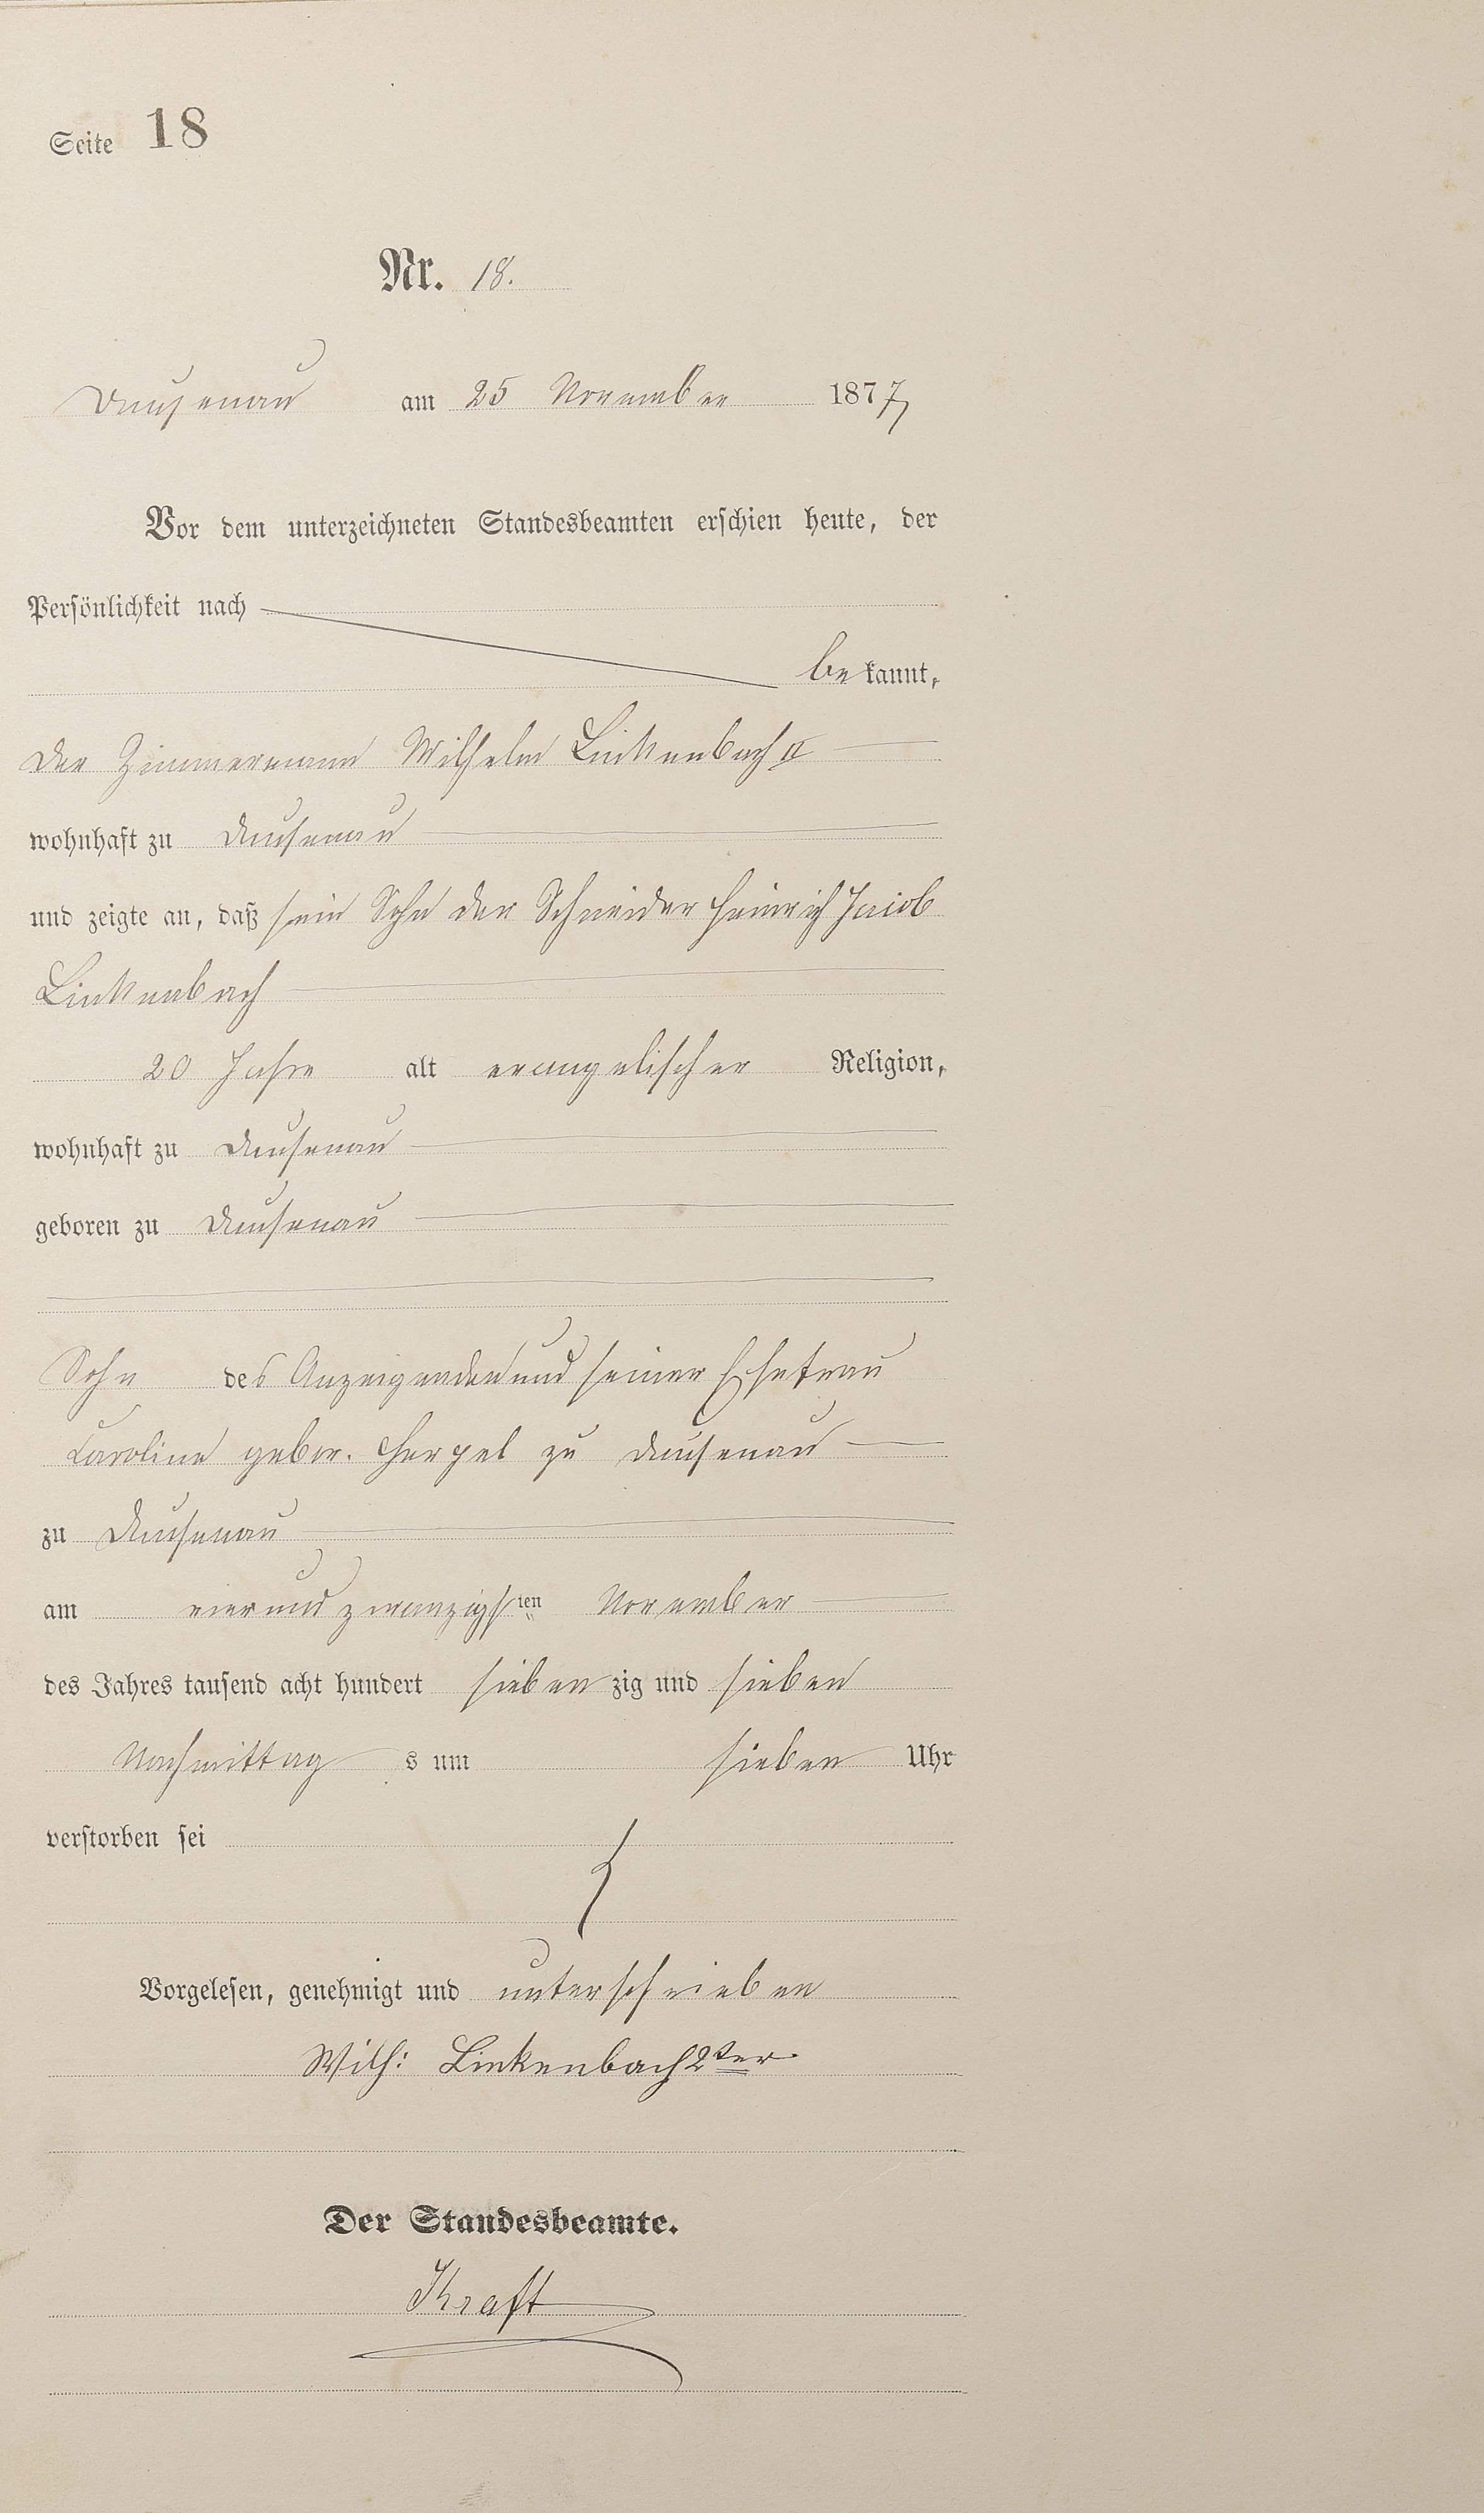 Seite 18
Nr. 18.
Dausenau am 25 November 1877
Vor dem unterzeichneten Standesbeamten erschien heute, der
Persönlichkeit nach
bekannt,
der Zimmermann Wilhelm Linkenbach II
wohnhaft zu Dausenau
und zeigte an, daß sein Sohn der Schneider Heinrich Jacob
Linkenbach
20 Jahre alt evangelischer Religion,
wohnhaft zu Dausenau
geboren zu Dausenau
Sohn des Anzeigenden und seiner Ehefrau
Caroline gebor. zu Dausenau
zu Dausenau
am vierundzwanzigsten November
des Jahres tausend acht hundert siebenzig und sieben
Nachmittags um sieben Uhr
verstorben sei
Vorgelesen, genehmigt und unterschrieben
Wilh: Linkenbach 2ter
Der Standesbeamte.
Kraft